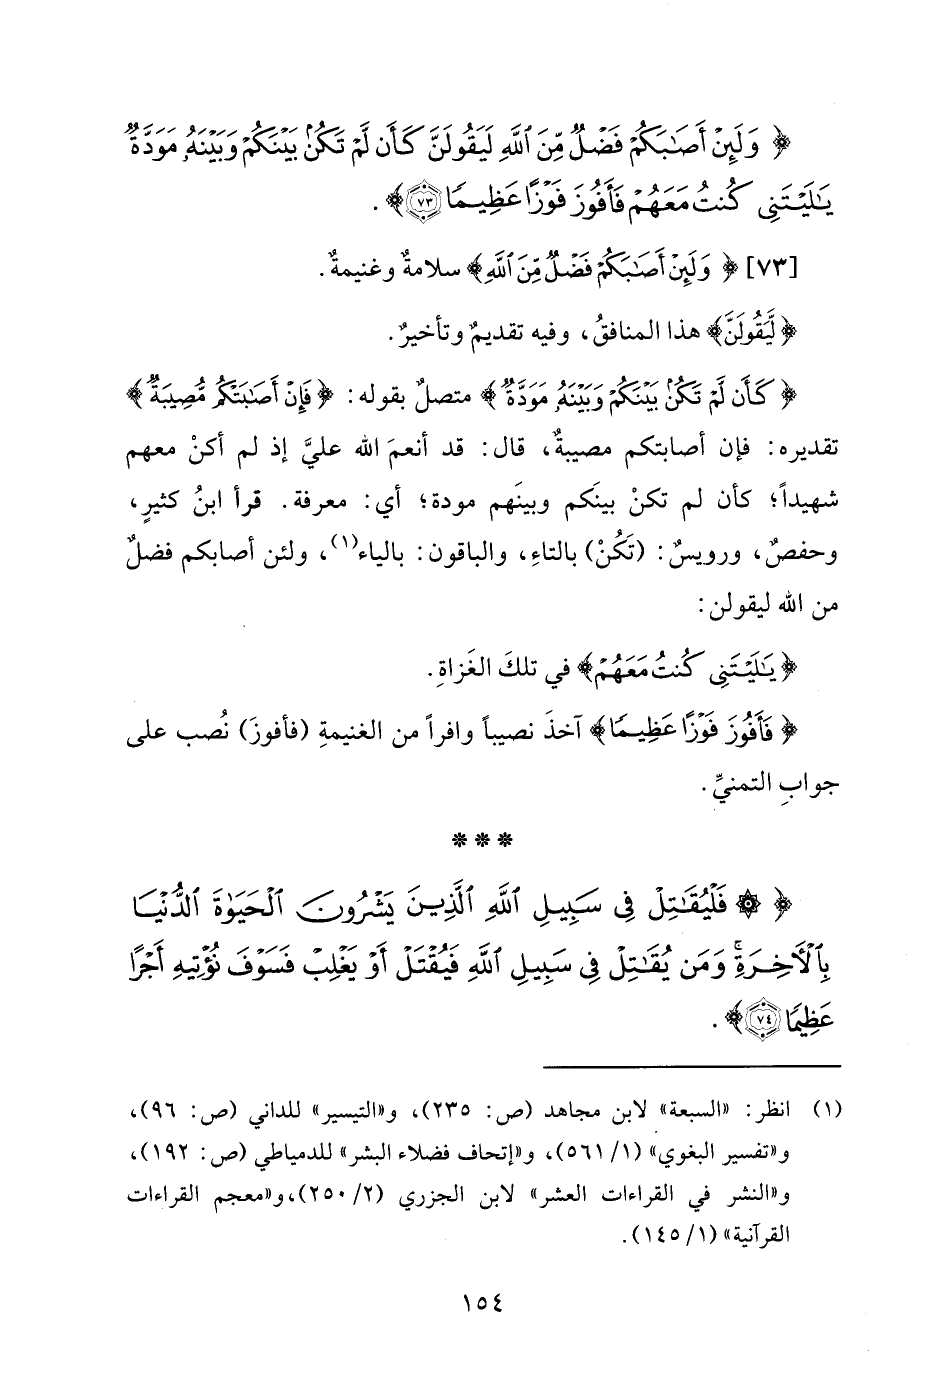 ﴿ وَلَئِنْ أَصَٰبَكُمْ فَضْلٌ مِّنَ ٱللَّهِ لَيَقُولَنَّ كَأَن لَّمْ تَكُنۢ بَيْنَكُمْ وَبَيْنَهُۥ مَوَدَّةٌ
يَٰلَيْتَنِى كُنتُ مَعَهُمْ فَأَفُوزَ فَوْزًا عَظِيمًا ٧٣ ﴾ .
[٧٣] ﴿ وَلَئِنْ أَصَٰبَكُمْ فَضْلٌ مِّنَ ٱللَّهِ ﴾ سلامةٌ وغنيمةٌ .
﴿ لَيَقُولَنَّ ﴾ هذا المنافقُ، وفيه تقديمٌ وتأخيرٌ .
﴿ كَأَن لَّمْ تَكُنۢ بَيْنَكُمْ وَبَيْنَهُۥ مَوَدَّةٌ ﴾ متصلٌ بقوله: ﴿ فَإِنْ أَصَٰبَتْكُم مُّصِيبَةٌ ﴾
تقديره: فإن أصابتكم مصيبةٌ، قال: قد أنعمَ الله عليَّ إذ لم أكنْ معهم
شهيداً؛ كأن لم تكنْ بينَكم وبينَهم مودة؛ أي: معرفة. قرأ ابنُ كثيرٍ،
وحفصٌ، ورويسٌ: (تَكُنْ) بالتاءِ، والباقون: بالياء(١)، ولئن أصابكم فضلٌ
من الله ليقولن:
﴿ يَٰلَيْتَنِى كُنتُ مَعَهُمْ ﴾ في تلكَ الغَزاةِ .
﴿ فَأَفُوزَ فَوْزًا عَظِيمًا ﴾ آخذَ نصيباً وافراً من الغنيمةِ (فأفوزَ) نُصب على
جوابِ التمنيِّ .
* * *
﴿ ۞ فَلْيُقَٰتِلْ فِى سَبِيلِ ٱللَّهِ ٱلَّذِينَ يَشْرُونَ ٱلْحَيَوٰةَ ٱلدُّنْيَا
بِٱلْأَخِرَةِ ۚ وَمَن يُقَٰتِلْ فِى سَبِيلِ ٱللَّهِ فَيُقْتَلْ أَوْ يَغْلِبْ فَسَوْفَ نُؤْتِيهِ أَجْرًا
عَظِيمًا ٧٤ ﴾ .
(١) انظر: «السبعة» لابن مجاهد (ص: ٢٣٥)، و«التيسير» للداني (ص: ٩٦)،
و«تفسير البغوي» (١/ ٥٦١)، و«إتحاف فضلاء البشر» للدمياطي (ص: ١٩٢)،
و«النشر في القراءات العشر» لابن الجزري (٢/ ٢٥٠)، و«معجم القراءات
القرآنية» (١/ ١٤٥).
١٥٤